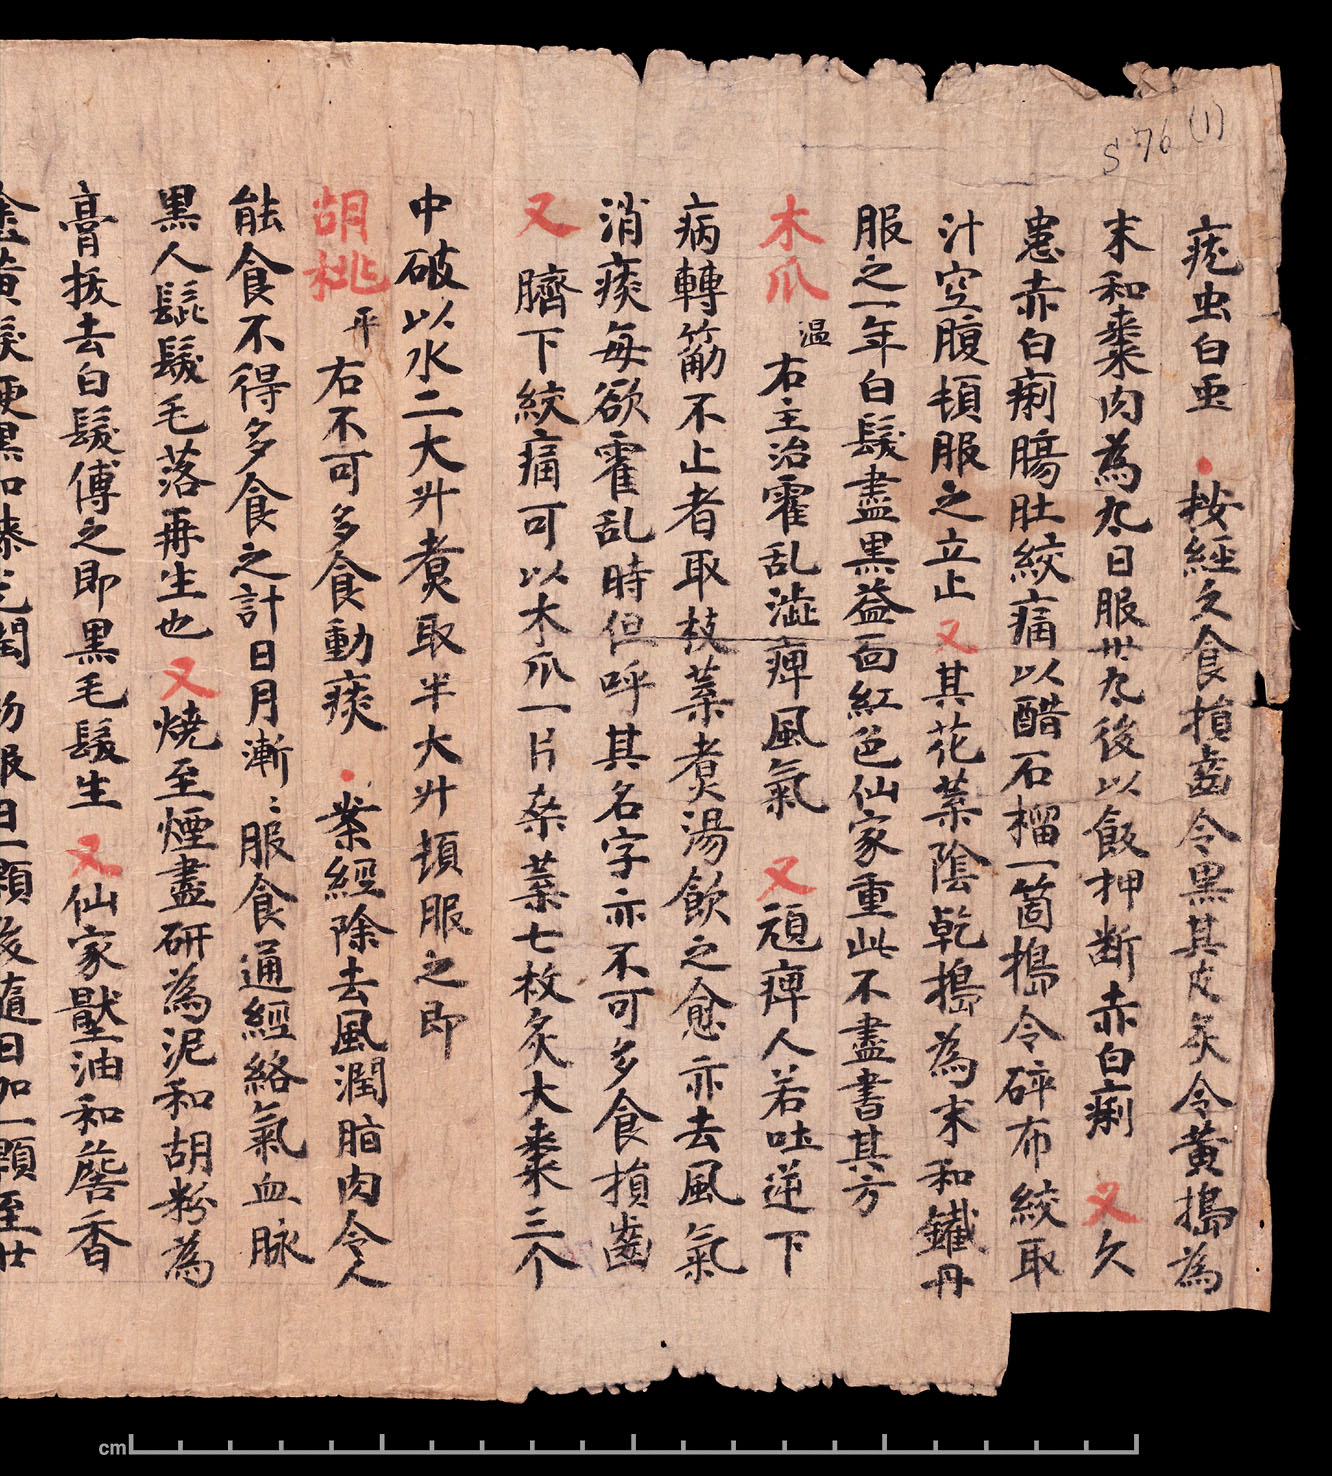 S 76 (1)
疣虫白虫 按經久食損齒令黒其皮炙令黃搗為
末和棗肉為丸日服卅丸後以飯押断赤白痢 又久
患赤白痢腸肚絞痛以醋石榴一箇搗令碎布絞取
汁空腹頓服之立止 又其花葉陰乾搗為末和鐵丹
服之一年白髮盡黒益面紅色仙家重此不盡書其方
木爪 温 右主治霍乱澁痺風氣 又頑痺人若吐逆下
病轉筋不止者取枝葉煮湯飲之愈亦去風氣
消痰每欲霍乱時但呼其名字亦不可多食損齒
又 臍下絞痛可以木爪一片桒葉七枚炙大棗三个
中破以水二大升煮取半大升頓服之即
胡桃 平 右不可多食動痰 案經除去風潤脂肉令人
能食不得多食之計日月漸〻服食通經絡氣血脉
黒人髭髮毛落再生也 又燒至煙盡研為泥和胡粉為
膏拔去白髮傅之即黒毛髮生 又仙家壓油和詹香